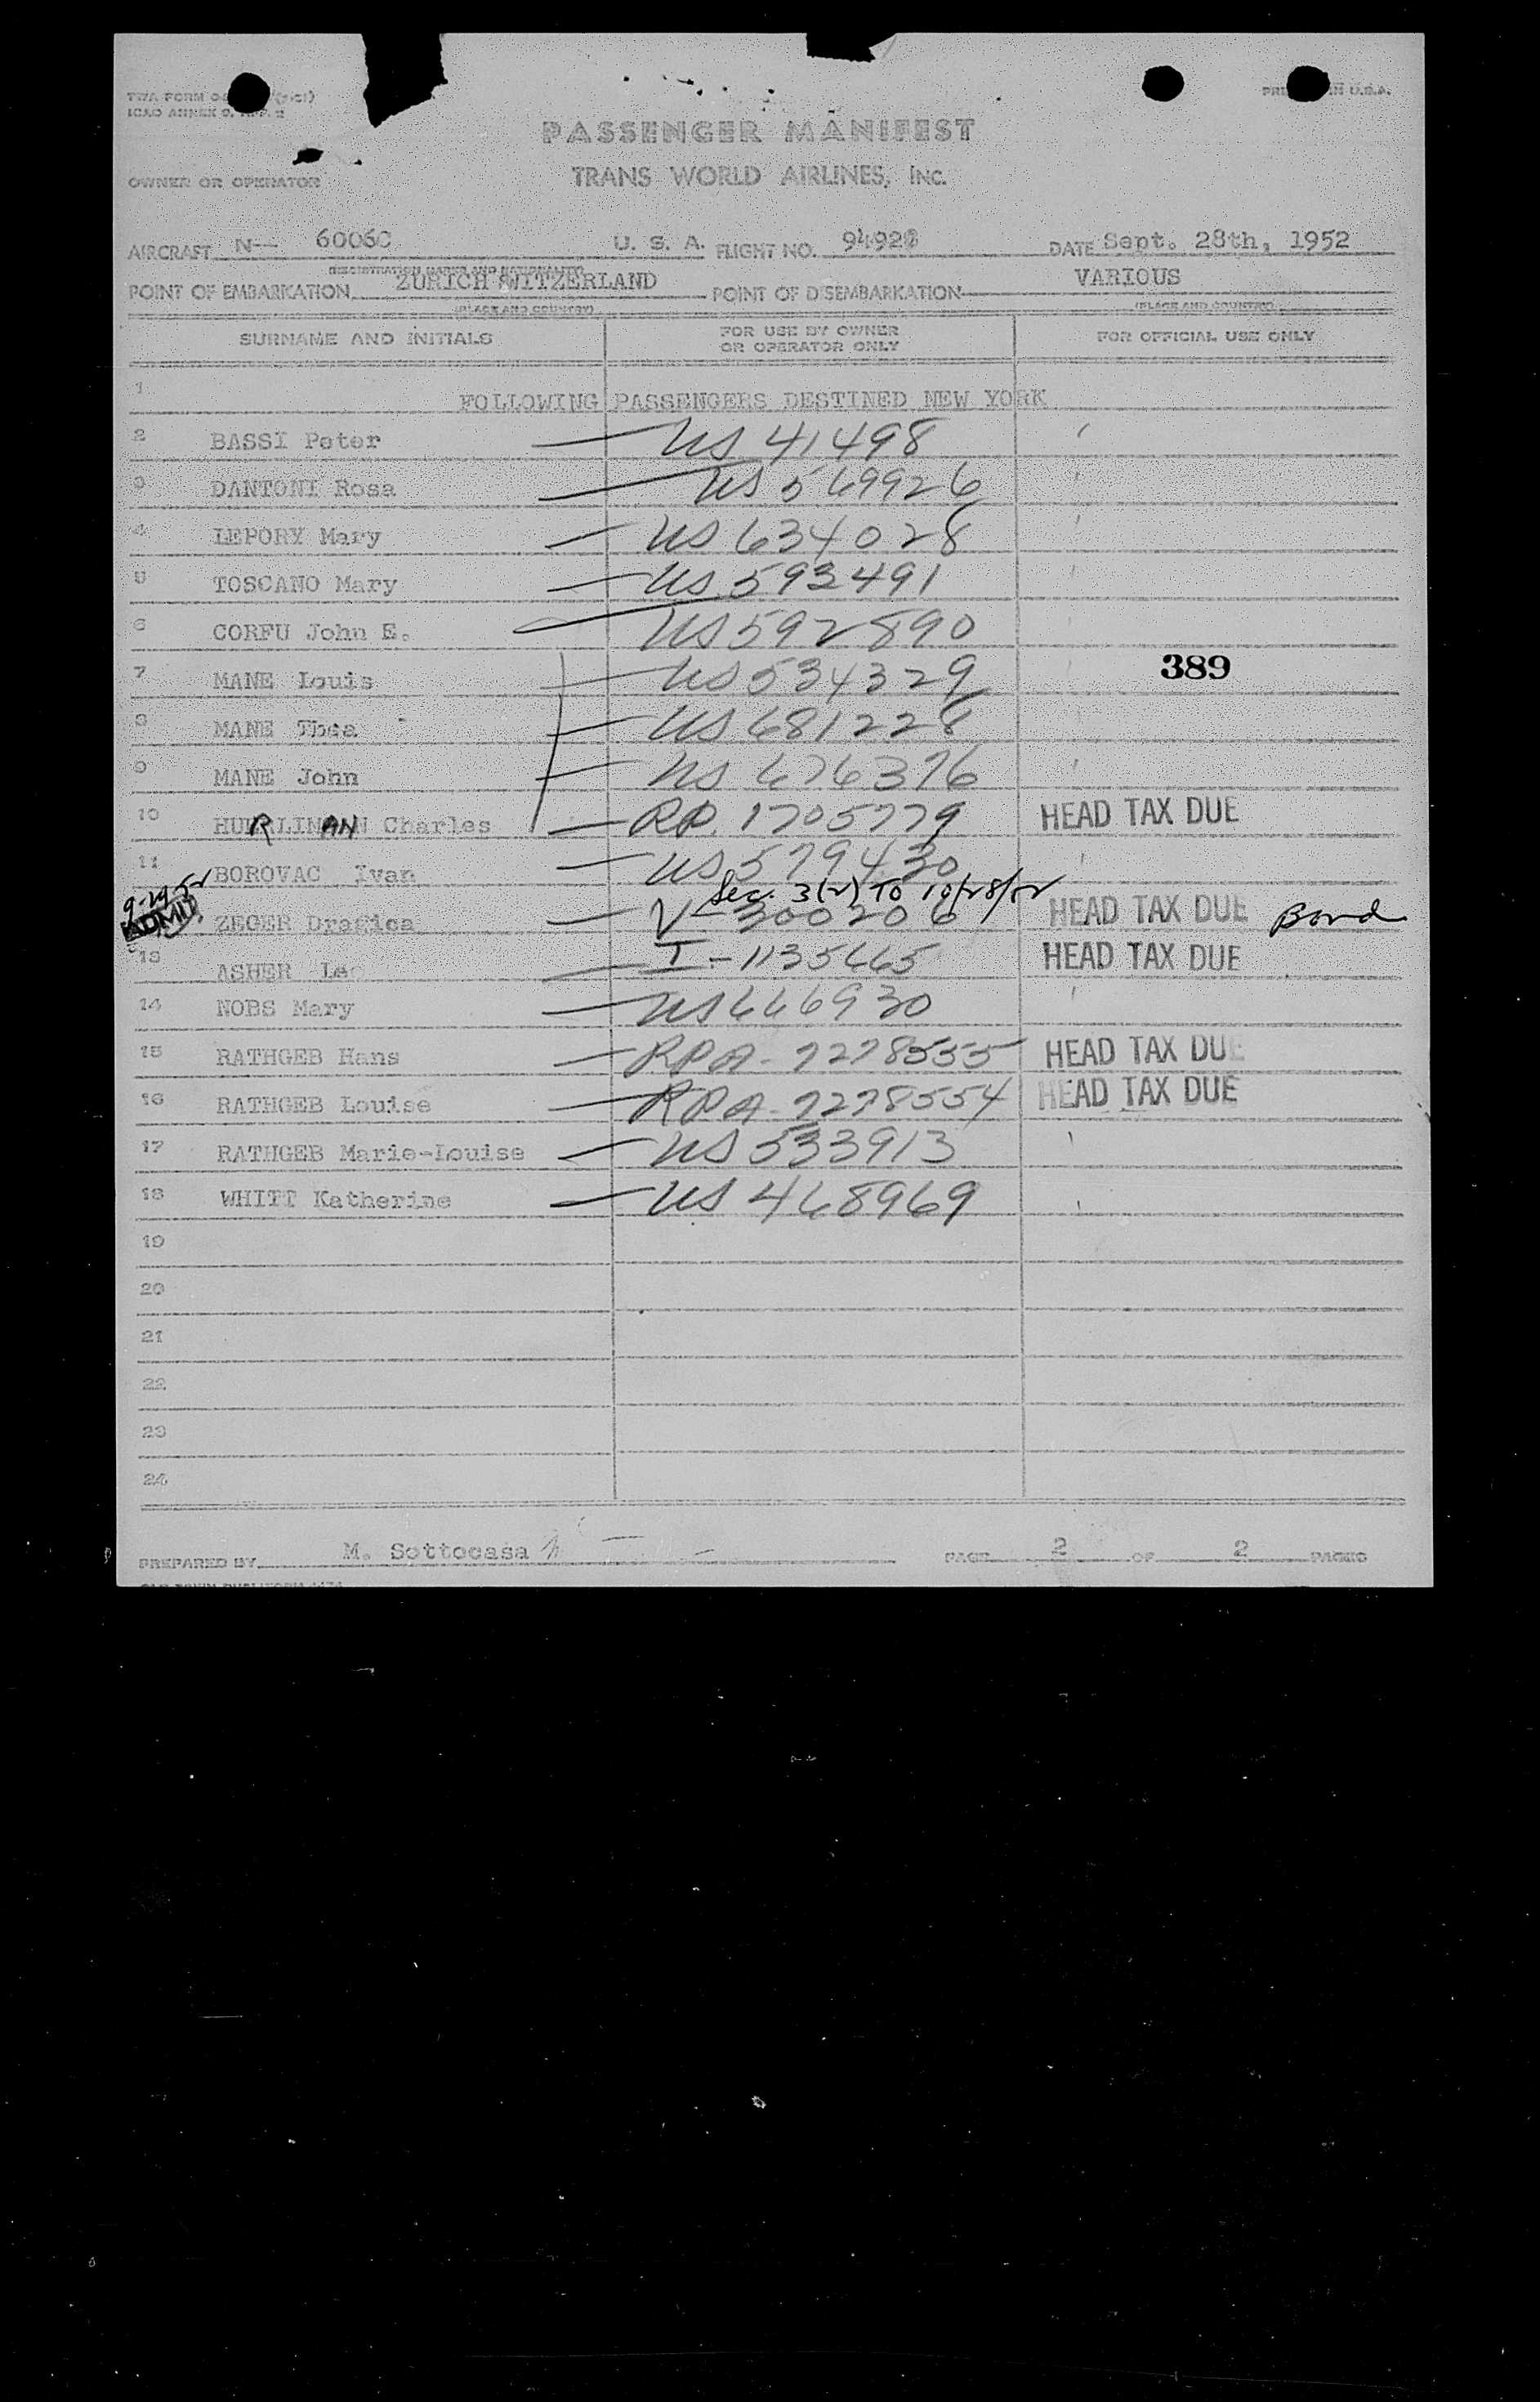 TWA FORM
ICAO ANNEX 9, APP. 2
IN U.S.A.
PASSENGER MANIFEST
OWNER OR OPERATOR
TRANS WORLD AIRLINES, INC.
AIRCRAFT N-- 6006C U. S. A. FLIGHT NO. DATE Sept. 28th, 1952
REGISTRATION MARKS AND NATIONALITY
POINT OF EMBARKATION ZURICH SWITZERLAND POINT OF DISEMBARKATION VARIOUS
(PLACE AND COUNTRY) (PLACE AND COUNTRY)
SURNAME AND INITIALS FOR USE BY OWNER OR OPERATOR ONLY FOR OFFICIAL USE ONLY
1 FOLLOWING PASSENGERS DESTINED NEW YORK
2 BASSI Peter US 41498
3 DANTONI Rosa US 569926
4 LEPORY Mary US 634028
5 TOSCANO Mary US 593491
6 CORFU John E. US 592890
7 MANE Louis US 534329 389
8 MANE Thea US 681228
9 MANE John US 676376
10 Charles RP. 1705779 HEAD TAX DUE
11 BOROVAC Ivan US 579430
9-29-52 Sec. 3(2) TO 10/28/52
ADMD. ZEGER Dragica V-300206 HEAD TAX DUE Bond
13 ASHER I-1135665 HEAD TAX DUE
14 NOBS Mary US 666930
15 RATHGEB Hans RPA-7278555 HEAD TAX DUE
16 RATHGEB Louise RPA-7278554 HEAD TAX DUE
17 RATHGEB Marie-Louise US 533913
18 WHITT Katherine US 468969
19
20
21
22
23
24
PREPARED BY M. Sottocasa PAGE 2 OF 2 PAGES